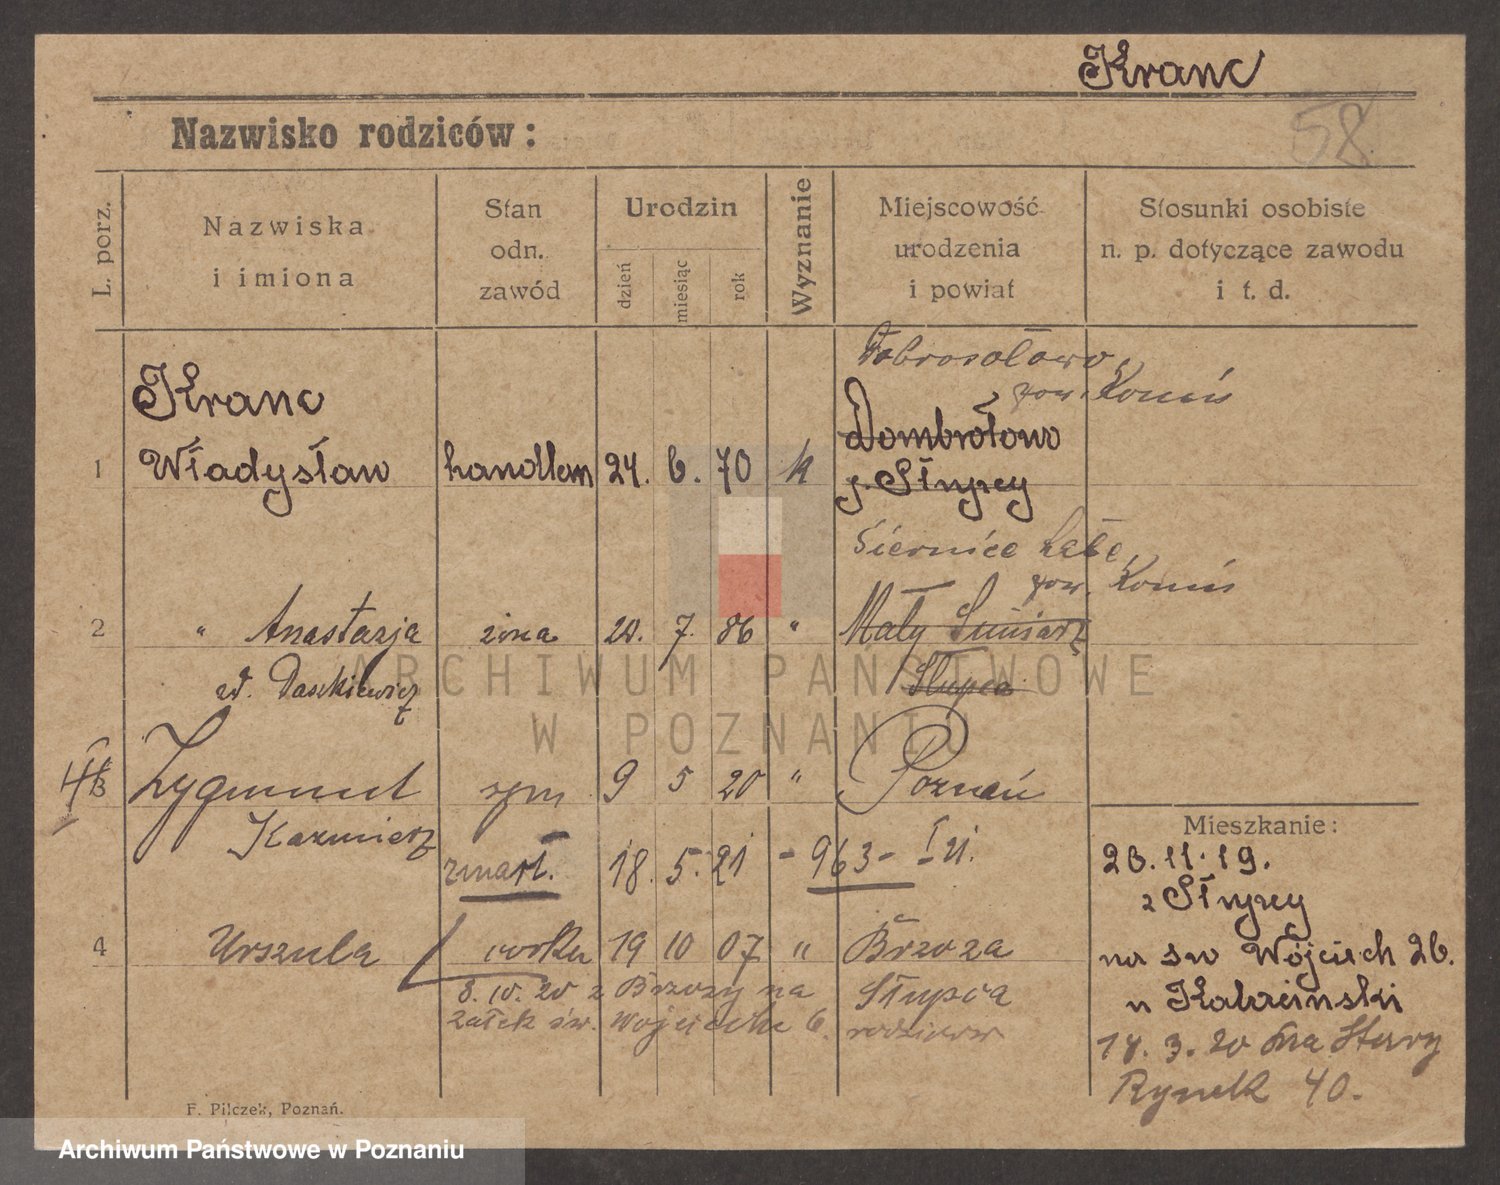 Kranc
58
Nazwisko rodziców:
L. porz.
Nazwiska
i imiona
Stan
odn.
zawód
Urodzin
dzień
miesiąc
rok
Wyznanie
Miejscowość
urodzenia
i powiat
Stosunki osobiste
n. p. dotyczące zawodu
i t. d.
Dobrosołowo,
pow. Konin
Kranc
Dombrołowo
1 Władysław handlem 24. 6. 70 k
p. Słupcy
Siernice
pow. Konin
2 " Anastazja żona 7. 86 " Mały
Słupca
Zygmunt syn 9 5 20 " Poznań
Kazmierz
Mieszkanie:
zmarł. 18. 5. 21 - 963 -
23. 11. 19.
z Słupcy
4 Urszula córka 19 10 07 " Brzoza
na św Wojciech 26.
8. 10. 20 z Brzozy na
Słupca
u
św. Wojciecha 6.
14. 3. 20 na Stary
Rynek 40.
F. Pilczek, Poznań.
ARCHIWUM PAŃSTWOWE
W POZNANIU
Archiwum Państwowe w Poznaniu